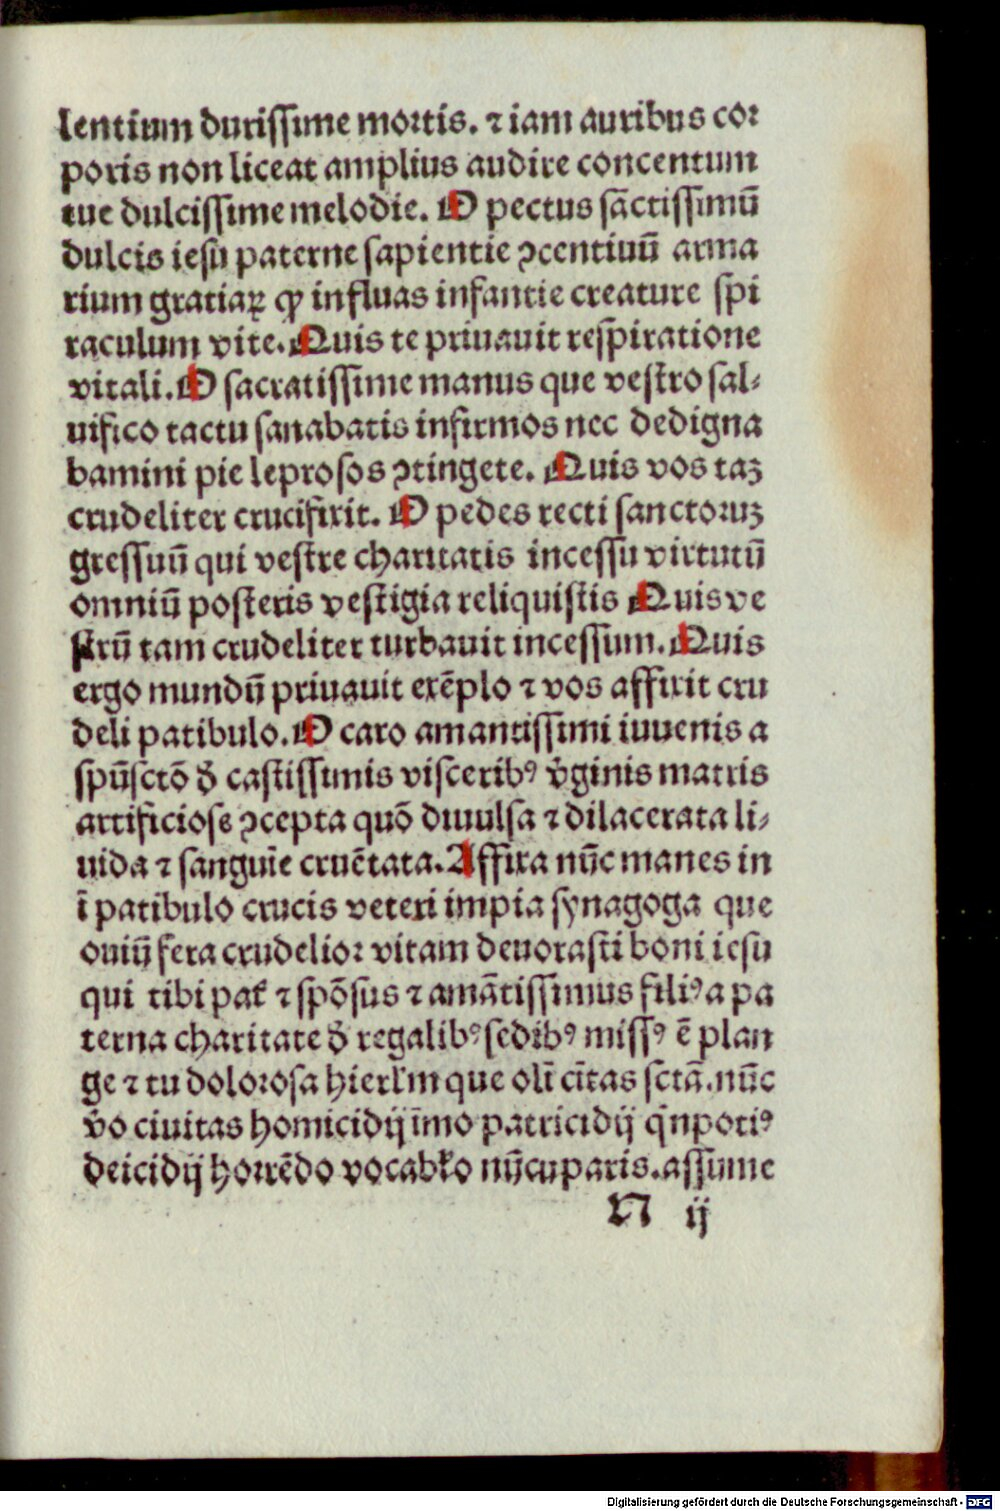 lentium durissime mortis. ⁊ iam auribus cor
poris non liceat amplius audire concentum
tue dulcissime melodie. O pectus sāctissimū
dulcis iesu paterne sapientie ꝯcentiuū arma
rium gratiaꝝ ꝙ influas infantie creature spi
raculum vite. Quis te priuauit respiratione
vitali. O sacratissime manus que vestro sal⸗
uifico tactu sanabatis infirmos nec dedigna
bamini pie leprosos ꝯtingere. Quis vos taꝫ
crudeliter crucifixit. O pedes recti sanctoruꝫ
gressuū qui vestre charitatis incessu virtutū
omniū posteris vestigia reliquistis Quis ve
strū tam crudeliter turbauit incessum. Quis
ergo mundū priuauit exēplo ⁊ vos affixit cru
deli patibulo. O caro amantissimi iuuenis a
spūsctō ð castissimis visceribꝰ v̓ginis matris
artificiose ꝯcepta quō diuulsa ⁊ dilacerata li⸗
uida ⁊ sanguīe cruētata. Affixa nūc manes in
ī patibulo crucis veteri impia synagoga que
ouiū fera crudelior vitam deuorasti boni iesu
qui tibi pat̓ ⁊ spōsus ⁊ amātissimus filiꝰ a pa
terna charitate ð regalibꝰ sedibꝰ missꝰ ē plan
ge ⁊ tu dolorosa hierl̄m que olī cītas sctā. nūc
v̓o ciuitas homicidij īmo patricidij qͥnpotiꝰ
deicidij horrēdo vocabl̓o nūcuparis. assume
N ij
Digitalisierung gefördert durch die Deutsche Forschungsgemeinschaft - DFG